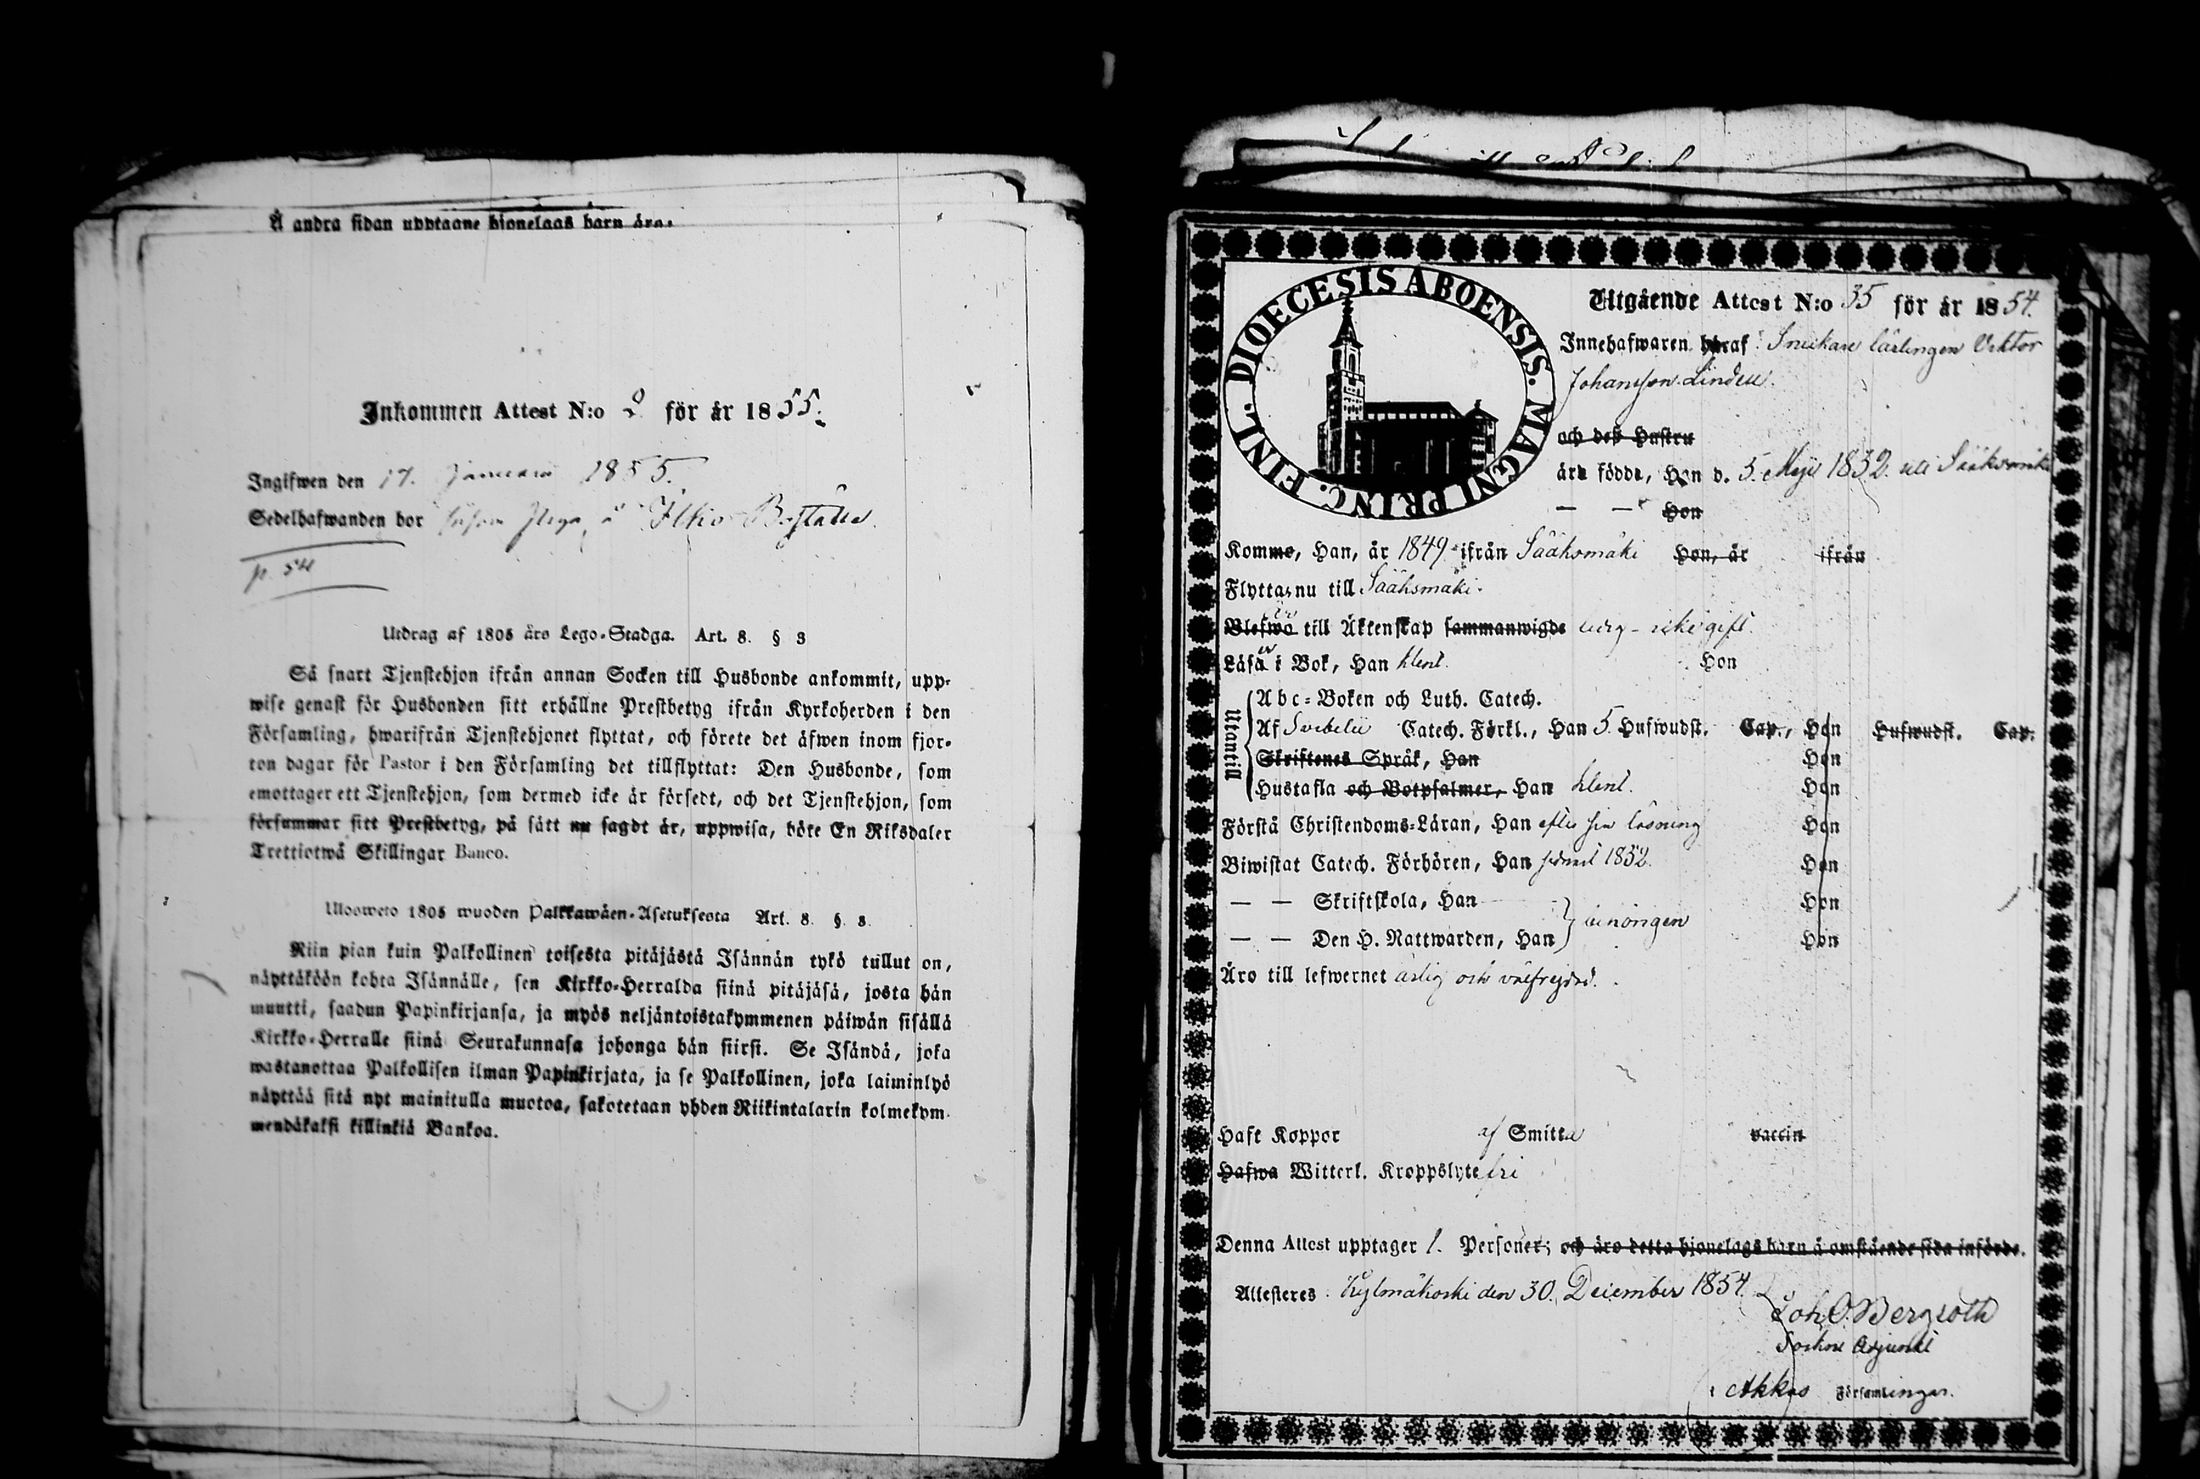 Å andra sidan upptagne hjonelags barn äro:
Inkommen Attest N:o 2 för år 1855.
Ingifwen den 17. Januari 1855.
Sedelhafwanden bor å Ilkio Boställe.
p. 54
Utdrag af 1805 års Lego-Stadga. Art. 8. § 3
Så snart Tjenstehjon ifrån annan Socken till Husbonde ankommit, upp-
wise genast för Husbonden sitt erhållne Prestbetyg ifrån Kyrkoherden i den
Församling, hwarifrån Tjenstehjonet flyttat, och förete det äfwen inom fjor-
ton dagar för Pastor i den Församling det tillflyttat: Den Husbonde, som
emottager ett Tjenstehjon, som dermed icke är försedt, och det Tjenstehjon, som
försummar sitt Prestbetyg, på sätt nu sagdt är, uppwisa, böte En Riksdaler
Trettiotwå Skillingar Banco.
Uloosweto 1805 wuoden Palkkawäen-Asetuksesta Art. 8. §. 3.
Niin pian kuin Palkollinen toisesta pitäjästä Isännän tykö tullut on,
näyttäköön kohta Isännälle, sen Kirkko-Herralda siinä pitäjäsä, josta hän
muutti, saadun Papinkirjansa, ja myös neljäntoistakymmenen päiwän sisällä
Kirkko-Herralle siinä Seurakunnasa johonga hän siirsi. Se Isändä, joka
wastanottaa Palkollisen ilman Papinkirjata, ja se Palkollinen, joka laiminlyö
näyttää sitä nyt mainitulla muotoa, sakotetaan yhden Riikintalarin kolmekym-
mendäkaksi killinkiä Bankoa.
DIOECESIS ABOENSIS. MAGNI PRINC. FINL.
Utgående Attest N:o 35 för år 1854.
Innehafwaren häraf: Snickare lärlingen Viktor
Johansson Lindell.
och dess Hustru
äro födde, Han d. 5 Maji 1832. uti Sääksmäki
— — Hon
Komme, Han, år 1849 ifrån Sääksmäki Hon, år ifrån
Flyttas nu till Sääksmäki.
är
Blefwo till Äktenskap sammanwigde ledig - icke gift.
Läsa i Bok, Han klent. Hon
Utantill
Abc-Boken och Luth. Catech.
Af Svebelii Catech. Förkl., Han 5 Hufwudst. Cap., Hon Hufwudst. Cap.
Skriftenes Språk, Han Hon
Hustafla och Botpsalmer, Han klent. Hon
Förstå Christendoms-Läran, Han efter sin läsning Hon
Biwistat Catech. Förhören, Han 1852. Hon
— — Skriftskola, Han Hon
— — Den H. Nattwarden, Han Hon
Äro till lefwernet ärlig och välfrejdad.
Haft Koppor af Smitta vaccin
Hafwa Witterl. Kroppslyte fri
Denna Attest upptager 1. Personer; och äro detta hjonelags barn å omstående sida införde.
Attesteras Kylmäkoski den 30. December 1854.
Joh. O. Bergroth
Sockne Adjunkt
i Akkas Församlingar.